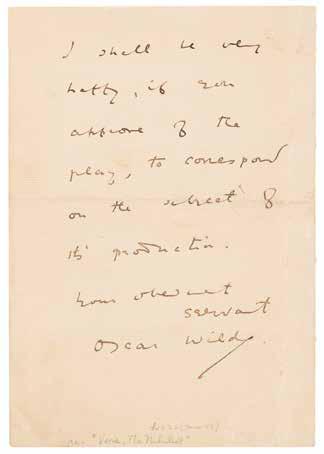 I shall be very
happy, if you
approve of the
play, to correspond
on the subject of
its production.
Your obedient
servant
Oscar Wilde.
re: "Vera, The Nihilist"